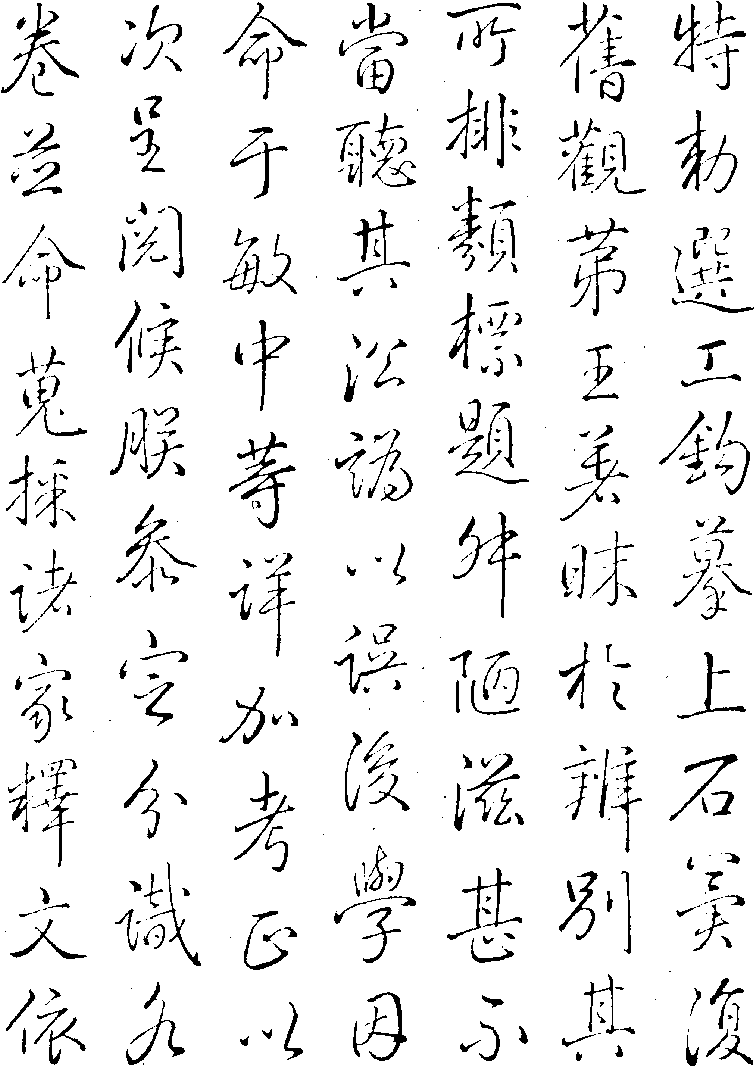 特勅選工鈎摹上石冀復
舊觀第王著昧於辨別其
所排類標題舛陋滋甚不
當聽其沿譌以誤後學因
命于敏中等詳加考正以
次呈閱候朕叅定分識各
卷並命蒐採諸家釋文依